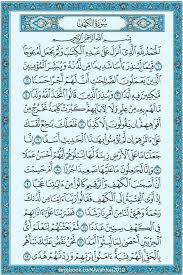 سورة الكهف
بسم الله الرحمن الرحيم
الحمد لله الذي أنزل على عبده الكتب ولم يجعل له عوجا
قيما لينذر بأسا شديدا من لدنه ويبشر المؤمنين
الذين يعملون الصلحت أن لهم أجرا حسنا
مكثين فيه أبدا وينذر الذين قالوا اتخذ الله ولدا
ما لهم به من علم ولا لآبائهم كبرت كلمة تخرج من
أفوههم إن يقولون إلا كذبا فلعلك بخع نفسك على
ءاثرهم إن لم يؤمنوا بهذا الحديث أسفا إنا
جعلنا ما على الأرض زينة لها لنبلوهم أيهم أحسن عملا
وإنا لجعلون ما عليها صعيدا جرزا أم حسبت
أن أصحب الكهف والرقيم كانوا من ءايتنا عجبا إذ
أوى الفتية إلى الكهف فقالوا ربنا ءاتنا من لدنك
رحمة وهيئ لنا من أمرنا رشدا فضربنا على ءاذانهم
في الكهف سنين عددا